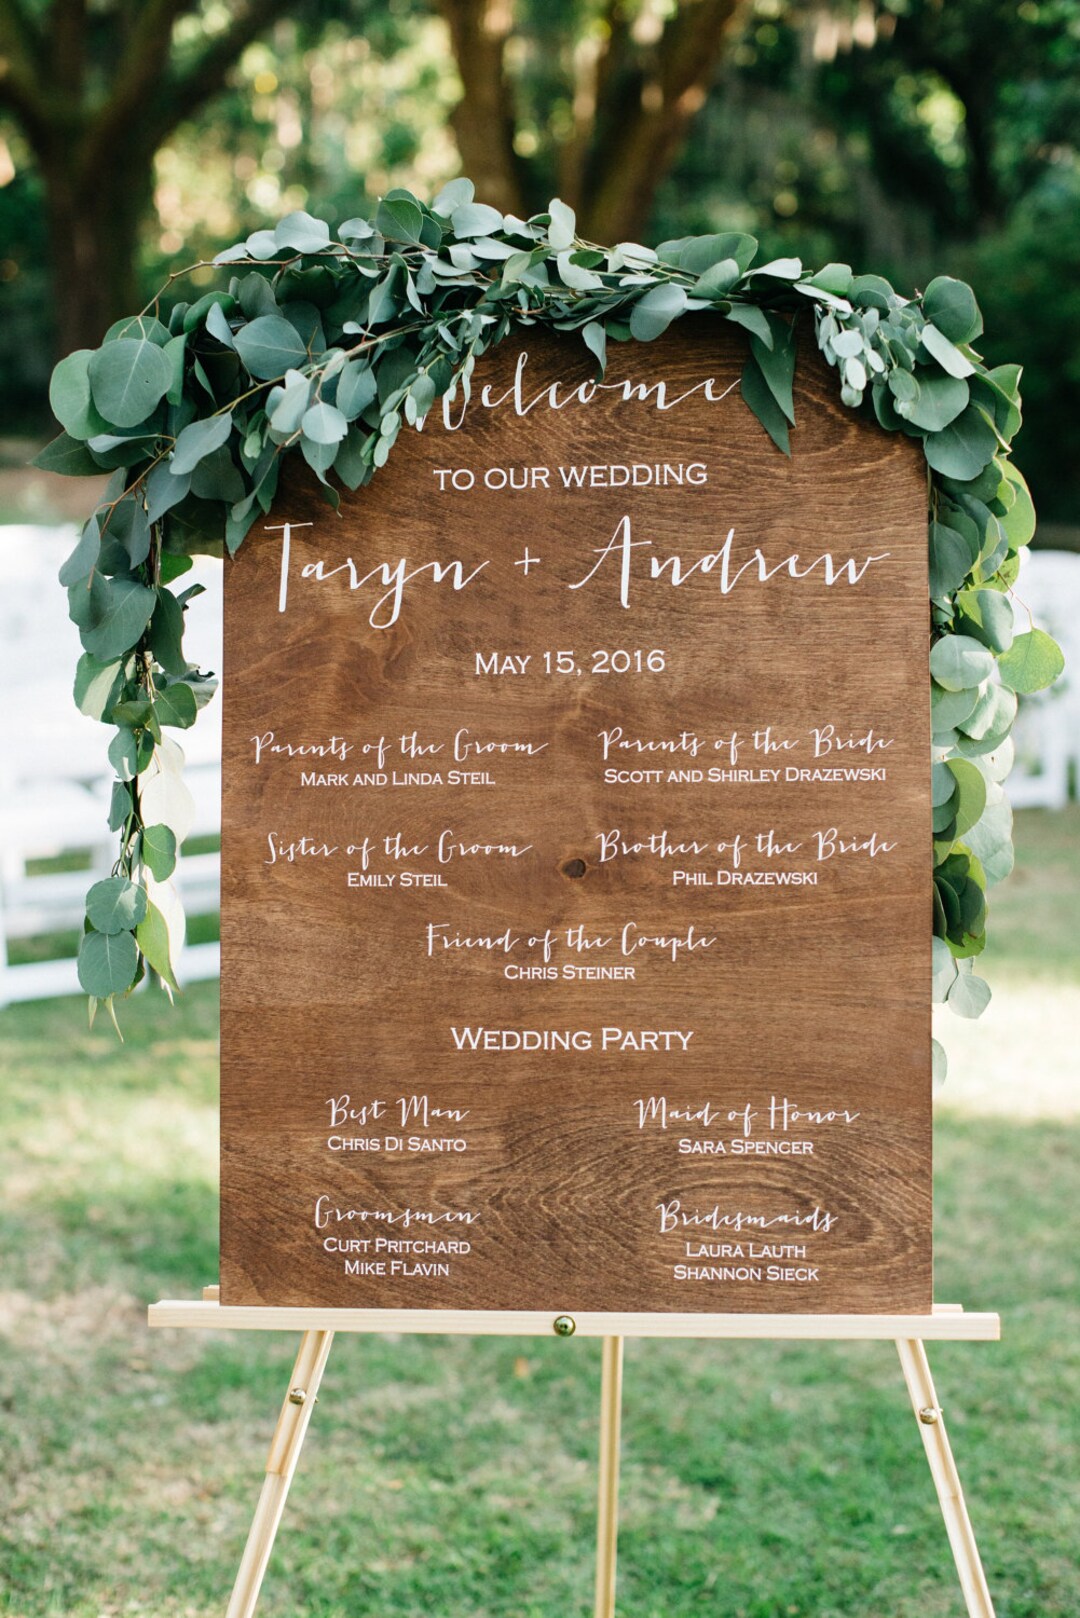 Welcome
TO OUR WEDDING
Taryn + Andrew
MAY 15, 2016
Parents of the Groom
MARK AND LINDA STEIL
Parents of the Bride
SCOTT AND SHIRLEY DRAZEWSKI
Sister of the Groom
EMILY STEIL
Brother of the Bride
PHIL DRAZEWSKI
Friend of the Couple
CHRIS STEINER
WEDDING PARTY
Best Man
CHRIS DI SANTO
Maid of Honor
SARA SPENCER
Groomsmen
CURT PRITCHARD
MIKE FLAVIN
Bridesmaids
LAURA LAUTH
SHANNON SIECK